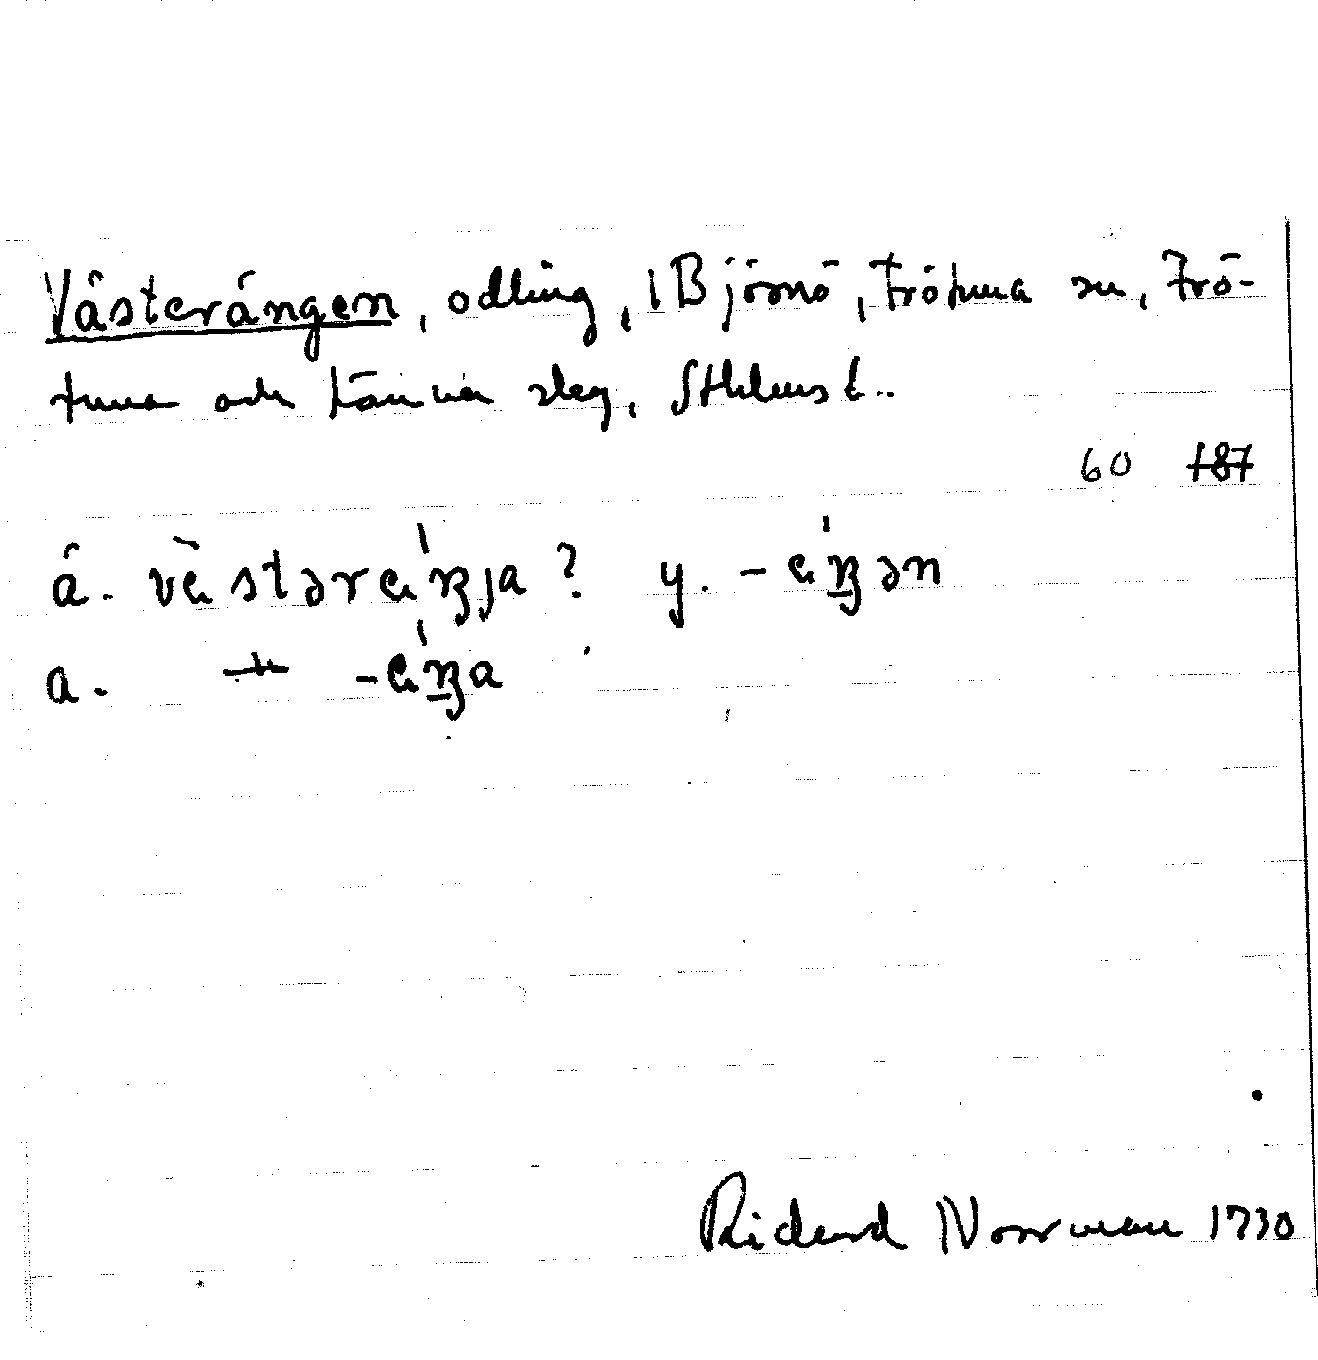 Västerängen, odling, 1 Björnö, Frötuna sn, Frö-
tuna och Länna slag, Sthlms l..
60 187
ä. vä̀stəräŋja? y. -äŋən
a. -äŋa
Rickard Norrman 1930